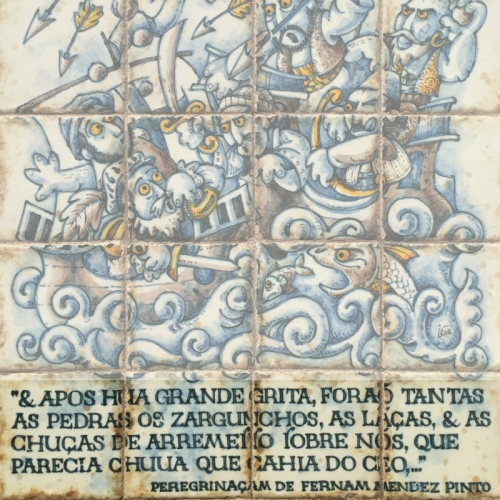 "& APOS HŨA GRANDE GRITA, FORAÕ TANTAS
AS PEDRAS OS ZARGUNCHOS, AS LAÇAS, & AS
CHUÇAS DE ARREMEÍÍO ÍOBRE NOS, QUE
PARECIA CHUUA QUE CAHIA DO CEO,..."
PEREGRINAÇAM DE FERNAM MENDEZ PINTO